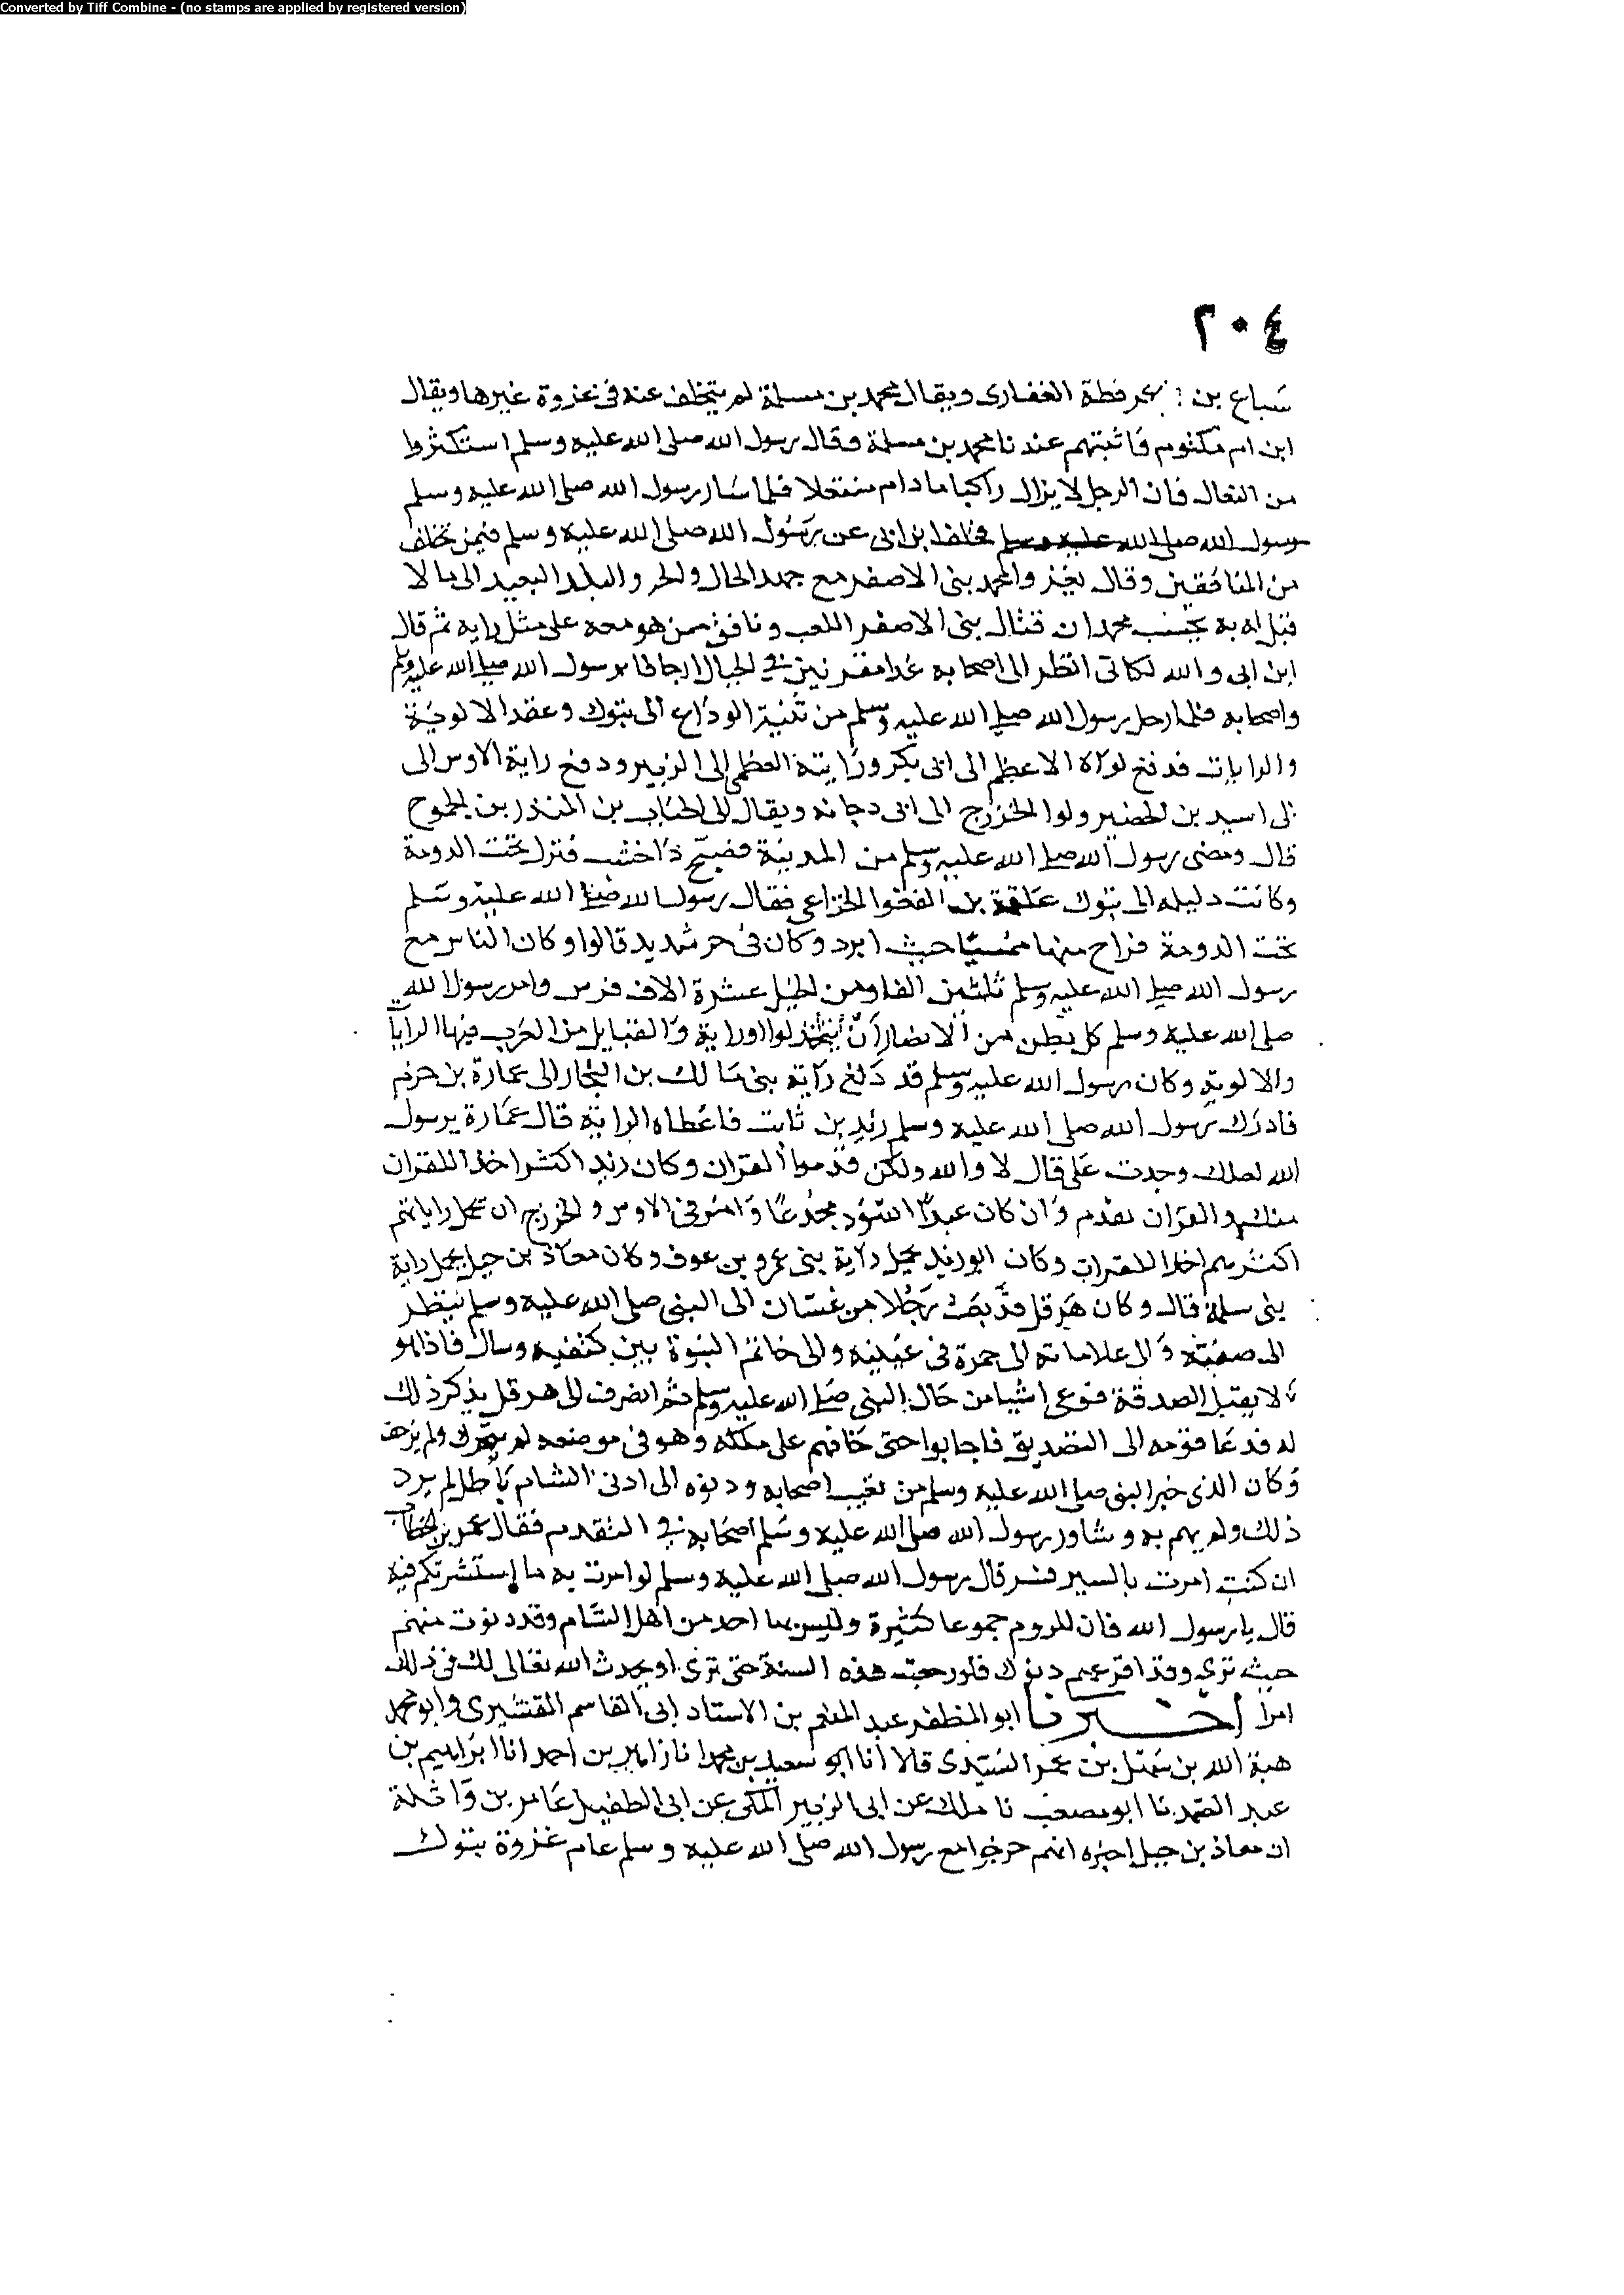 Converted by Tiff Combine - (no stamps are applied by registered version)
٢٠٤
سباع بن عرفطة الغفارى ويقال محمد بن مسلمة لم يتخلف عنه فى غزوة غيرها ويقال
ابن ام مكتوم فاثبتهم عندنا محمد بن مسلمة وقال رسول الله صلى الله عليه وسلم استكثروا
من النعال فان الرجل لا يزال راكبا ما دام منتعلا فلما سار رسول الله صلى الله عليه وسلم
رسول الله صلى الله عليه وسلم تخلف ابن ابى عن رسول الله صلى الله عليه وسلم فيمن تخلف
من المنافقين وقال يغزوا محمد بنى الاصفر مع جهد الحال والحر والبلد البعيد الى ما لا
قبل له به يحسب محمد ان قتال بنى الاصفر اللعب ونافق من هو معه على مثل رايه ثم قال
ابن ابى والله لكانى انظر الى اصحابه غدا مقرنين فى الحبال ارجافا برسول الله صلى الله عليه وسلم
واصحابه فلما رحل رسول الله صلى الله عليه وسلم من ثنية الوداع الى تبوك وعقد الالوية
والرايات فدفع لواه الاعظم الى ابى بكر ورايته العظمى الى الزبير ودفع راية الاوس الى
الى اسيد بن الحضير ولوا الخزرج الى ابى دجانه ويقال الى الحباب بن المنذر بن الجموح
قال ومضى رسول الله صلى الله عليه وسلم من المدينة فصبح ذا خشب فنزل تحت الدومة
وكانت دليله الى تبوك علقمة بن الفغوا الخزاعى فقال رسول الله صلى الله عليه وسلم
تحت الدومة فراح منها ممسيا حيث ابرد وكان فى حر شديد قالوا وكان الناس مع
رسول الله صلى الله عليه وسلم ثلثين الفا ومن الخيل عشرة الاف فرس وامر رسول الله
صلى الله عليه وسلم كل بطن من الانصار ان يتخذ لوا او راية والقبايل من العرب فيها الرايا
والالوية وكان رسول الله عليه وسلم قد دفع راية بنى مالك بن النجار الى عمارة بن حزم
فادرك رسول الله صلى الله عليه وسلم زيد بن ثابت فاعطاه الراية قال عمارة يرسول
الله لعلك وجدت على قال لا والله ولكن قدموا القران وكان زيد اكثر اخذا للقران
منك والقران يقدم وان كان عبدا اسود مجدعا وامر فى الاوس والخزرج ان تحمل راياتهم
اكثرهم اخذا للقران وكان ابو زيد يحمل راية بنى عمرو بن عوف وكان معاذ بن جبل يحمل راية
بنى سلمة قال وكان هرقل قد بعث رجلا من غسان الى النبى صلى الله عليه وسلم ينظر
الى صفته والى علاماته الى حمرة فى عينيه والى خاتم النبوة بين كتفيه وسال فاذا هو
لا يقبل الصدقة فوعى اشيا من حال النبى صلى الله عليه وسلم ثم انصرف الى هرقل يذكر ذلك
له فدعا قومه الى التصديق فاجابوا حتى خافهم على ملكه وهو فى موضعه لم يتحرك ولم يزحف
وكان الذى خبر النبى صلى الله عليه وسلم من تعبيه اصحابه ودنوه الى ادنى الشام باطل لم يرد
ذلك ولم يهم به وشاور رسول الله صلى الله عليه وسلم اصحابه فى التقدم فقال عمر بن الخطاب
ان كنت امرت بالسير فسر قال رسول الله صلى الله عليه وسلم لو امرت به ما استشرتكم فيه
قال يا رسول الله فان للروم جموعا كثيرة وليس بها احد من اهل الشام وقد دنوت منهم
حيث ترى وقد افزعهم دنوك فلو رجعت هذه السنة حتى ترى او يحدث الله تعالى لك فى ذلك
امرا اخبرنا ابو المظفر عبد المنعم بن الاستاد ابى القاسم القشيرى وابو محمد
هبة الله بن سهل بن عمر السيدى قالا انا ابو سعيد بن محمد انا زاهر بن احمد انا ابراهيم بن
عبد الصمد نا ابو مصعب نا ملك عن ابى الزبير المكى عن ابى الطفيل عامر بن واثلة
ان معاذ بن جبل اخبره انهم خرجوا مع رسول الله صلى الله عليه وسلم عام غزوة تبوك